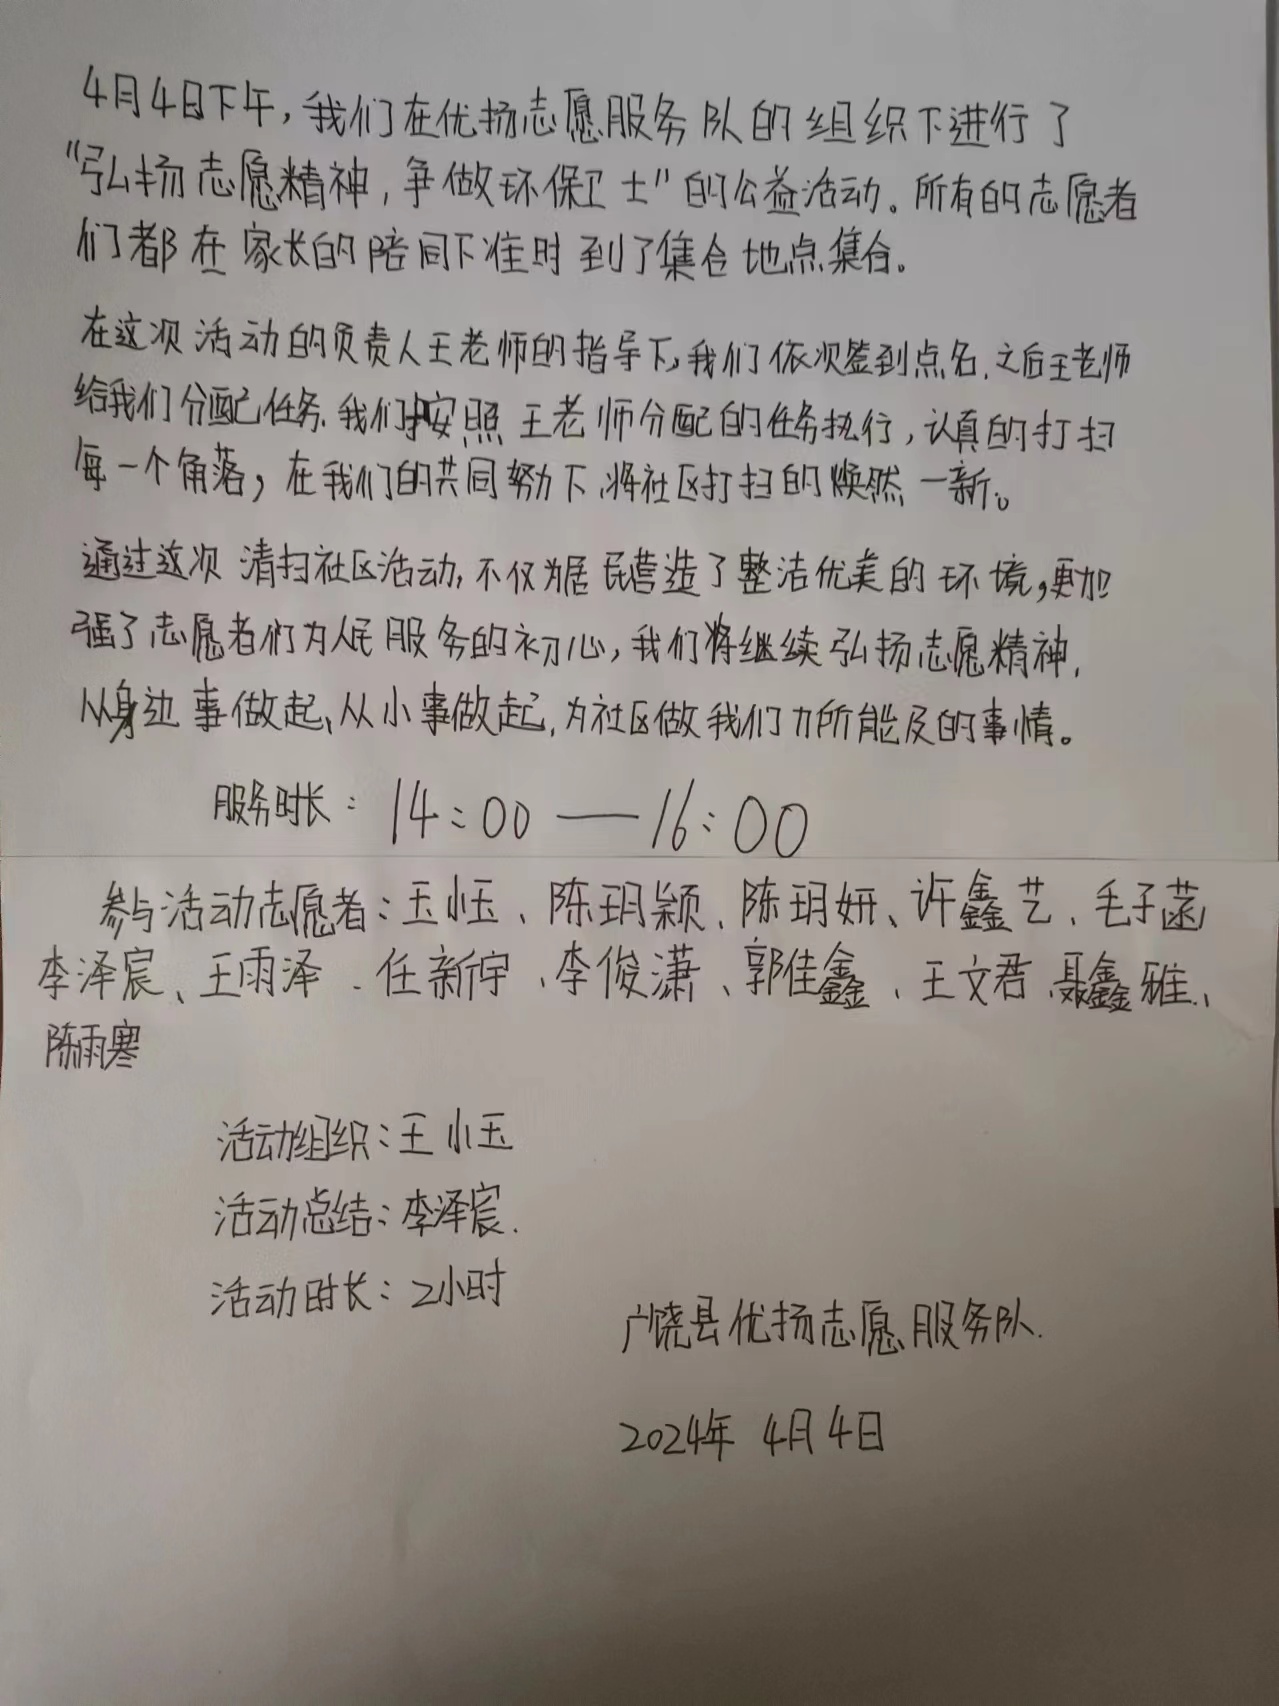 4月4日下午,我们在优扬志愿服务队的组织下进行了
"弘扬志愿精神,争做环保卫士"的公益活动。所有的志愿者
们都在家长的陪同下准时到了集合地点集合。
在这次活动的负责人王老师的指导下,我们依次签到点名.之后王老师
给我们分配任务.我们按照王老师分配的任务执行,认真的打扫
每一个角落,在我们的共同努力下.将社区打扫的焕然一新。
通过这次清扫社区活动,不仅为居民营造了整洁优美的环境,更加
强了志愿者们为人民服务的初心,我们将继续弘扬志愿精神.
从身边事做起、从小事做起.为社区做我们力所能及的事情。
服务时长:14:00——16:00
参与活动志愿者:王小玉、陈玥颖、陈玥妍、许鑫艺、毛子菡
李泽宸、王雨泽、任新宇、李俊潇、郭佳鑫、王文君、聂鑫雅、
陈雨寒
活动组织:王小玉
活动总结:李泽宸.
活动时长:2小时
广饶县优扬志愿服务队.
2024年4月4日